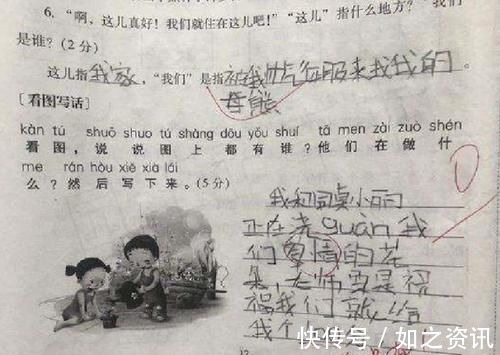 6. “啊，这儿真好！我们就住在这儿吧！”“这儿”指什么地方？“我们”
是谁？(2分)
这儿指我家，“我们”是指被我帅气征服来找我的
母熊。
[看图写话]
kàn tú shuō shuo tú shàng dōu yǒu shuí tā men zài zuò shén
看图，说说图上都有谁？他们在做什
me rán hòu xiě xià lái
么？然后写下来。(5分)
我和同桌小丽
正在浇guàn我
们爱情的花
朵，老师当是祝
福我们就给
我个
快传号／如之资讯